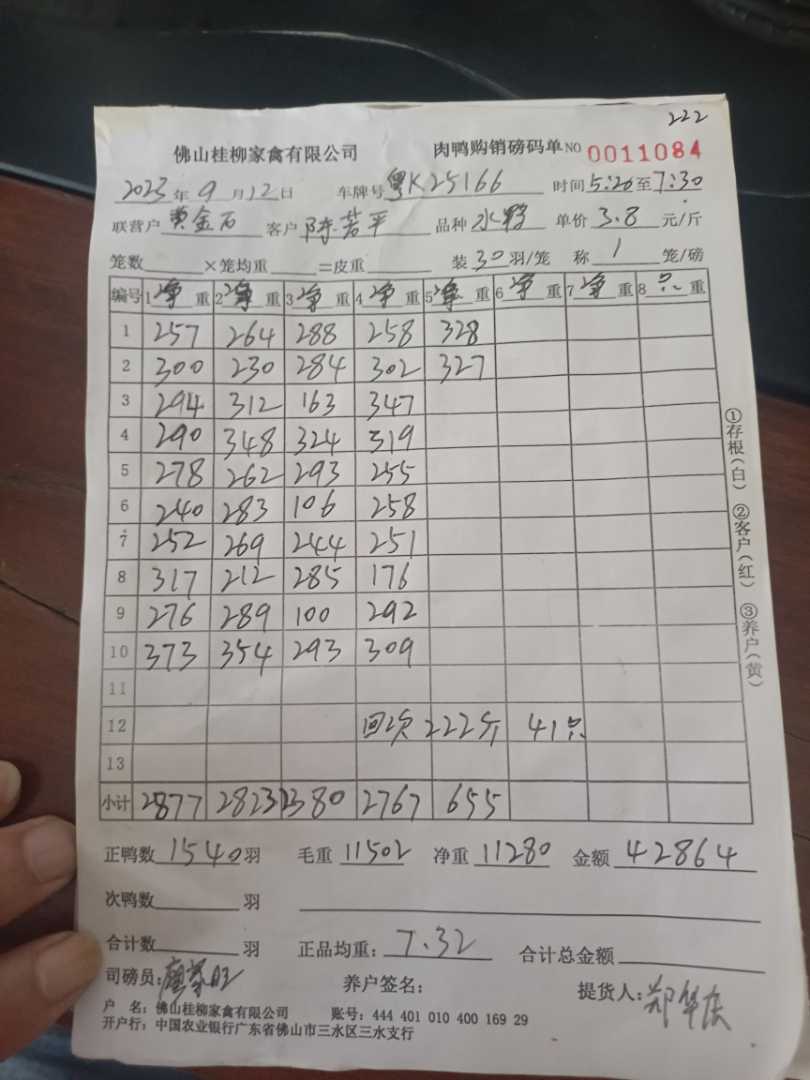 222
佛山桂柳家禽有限公司 肉鸭购销磅码单 NO 0011084
2023年9月12日 车牌号 粤K25166 时间 5:20 至 7:30
联营户 黄金石 客户 陈若平 品种 水鸭 单价 3.8 元/斤
笼数 ×笼均重 =皮重 装 30 羽/笼 称 1 笼/磅
编号 1 净 重 2 净 重 3 净 重 4 净 重 5 净 重 6 净 重 7 净 重 8 只 重
1 257 264 288 258 328
2 300 230 284 302 327
3 294 312 163 347
4 290 348 324 319
5 278 262 293 255
6 240 283 106 258
7 252 269 244 251
8 317 212 285 176
9 276 289 100 292
10 373 354 293 309
11
12 回次 222斤 41只
13
小计 2877 2823 2380 2767 655
正鸭数 1540 羽 毛重 11502 净重 11280 金额 42864
次鸭数 羽
合计数 羽 正品均重: 7.32 合计总金额
司磅员: 养户签名: 提货人: 郑华庆
户 名: 佛山桂柳家禽有限公司 账号: 444 401 010 400 169 29
开户行: 中国农业银行广东省佛山市三水区三水支行
①存根(白) ②客户(红) ③养户(黄)